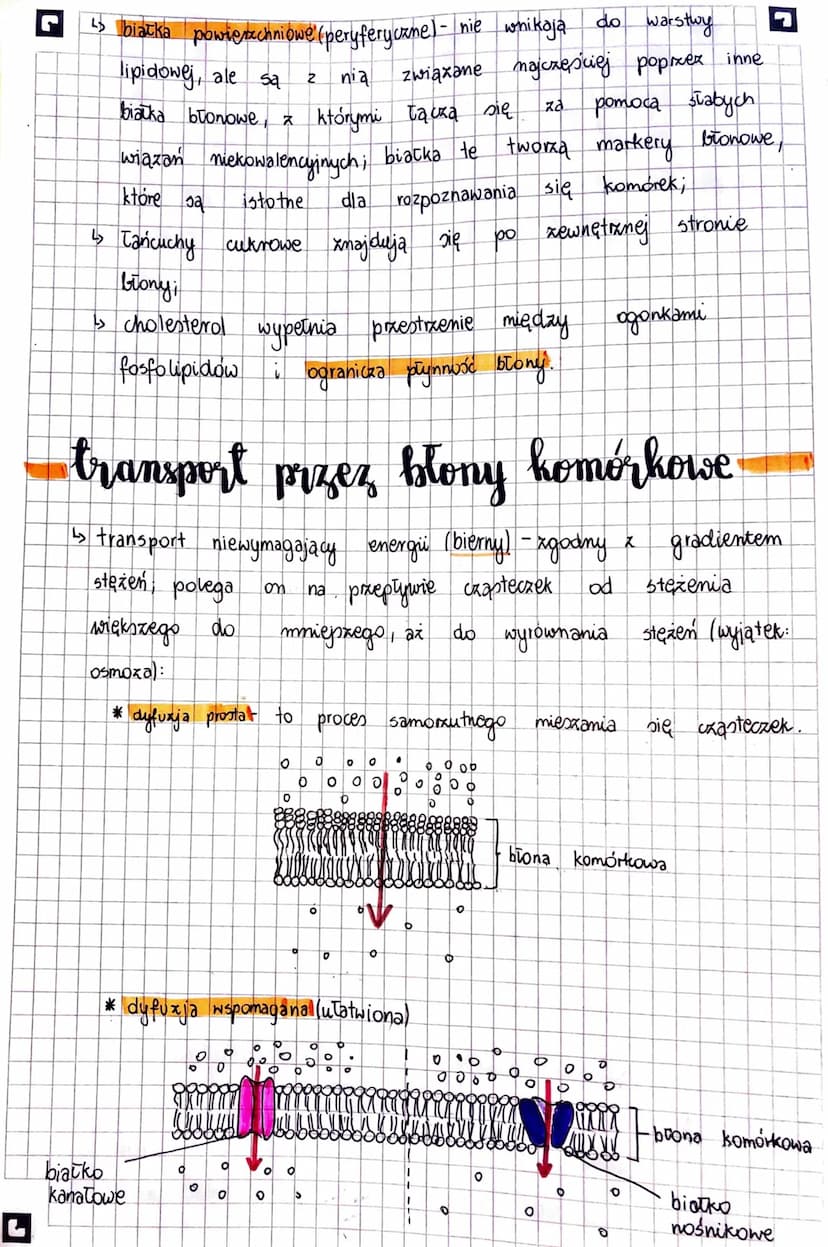 ↳ białka powierzchniowe (peryferyczne) - nie wnikają do warstwy
lipidowej, ale są z nią związane najczęściej poprzez inne
białka błonowe, z którymi łączą się za pomocą słabych
wiązań niekowalencyjnych; białka te tworzą markery błonowe,
które są istotne dla rozpoznawania się komórek;
↳ łańcuchy cukrowe znajdują się po zewnętrznej stronie
błony;
↳ cholesterol wypełnia przestrzenie między ogonkami
fosfolipidów i ogranicza płynność błony.
transport przez błony komórkowe
↳ transport niewymagający energii (bierny) - zgodny z gradientem
stężeń; polega on na przepływie cząsteczek od stężenia
większego do mniejszego, aż do wyrównania stężeń (wyjątek:
osmoza):
* dyfuzja prosta - to proces samorzutnego mieszania się cząsteczek.
błona komórkowa
* dyfuzja wspomagana (ułatwiona)
błona komórkowa
białko
kanałowe
białko
nośnikowe